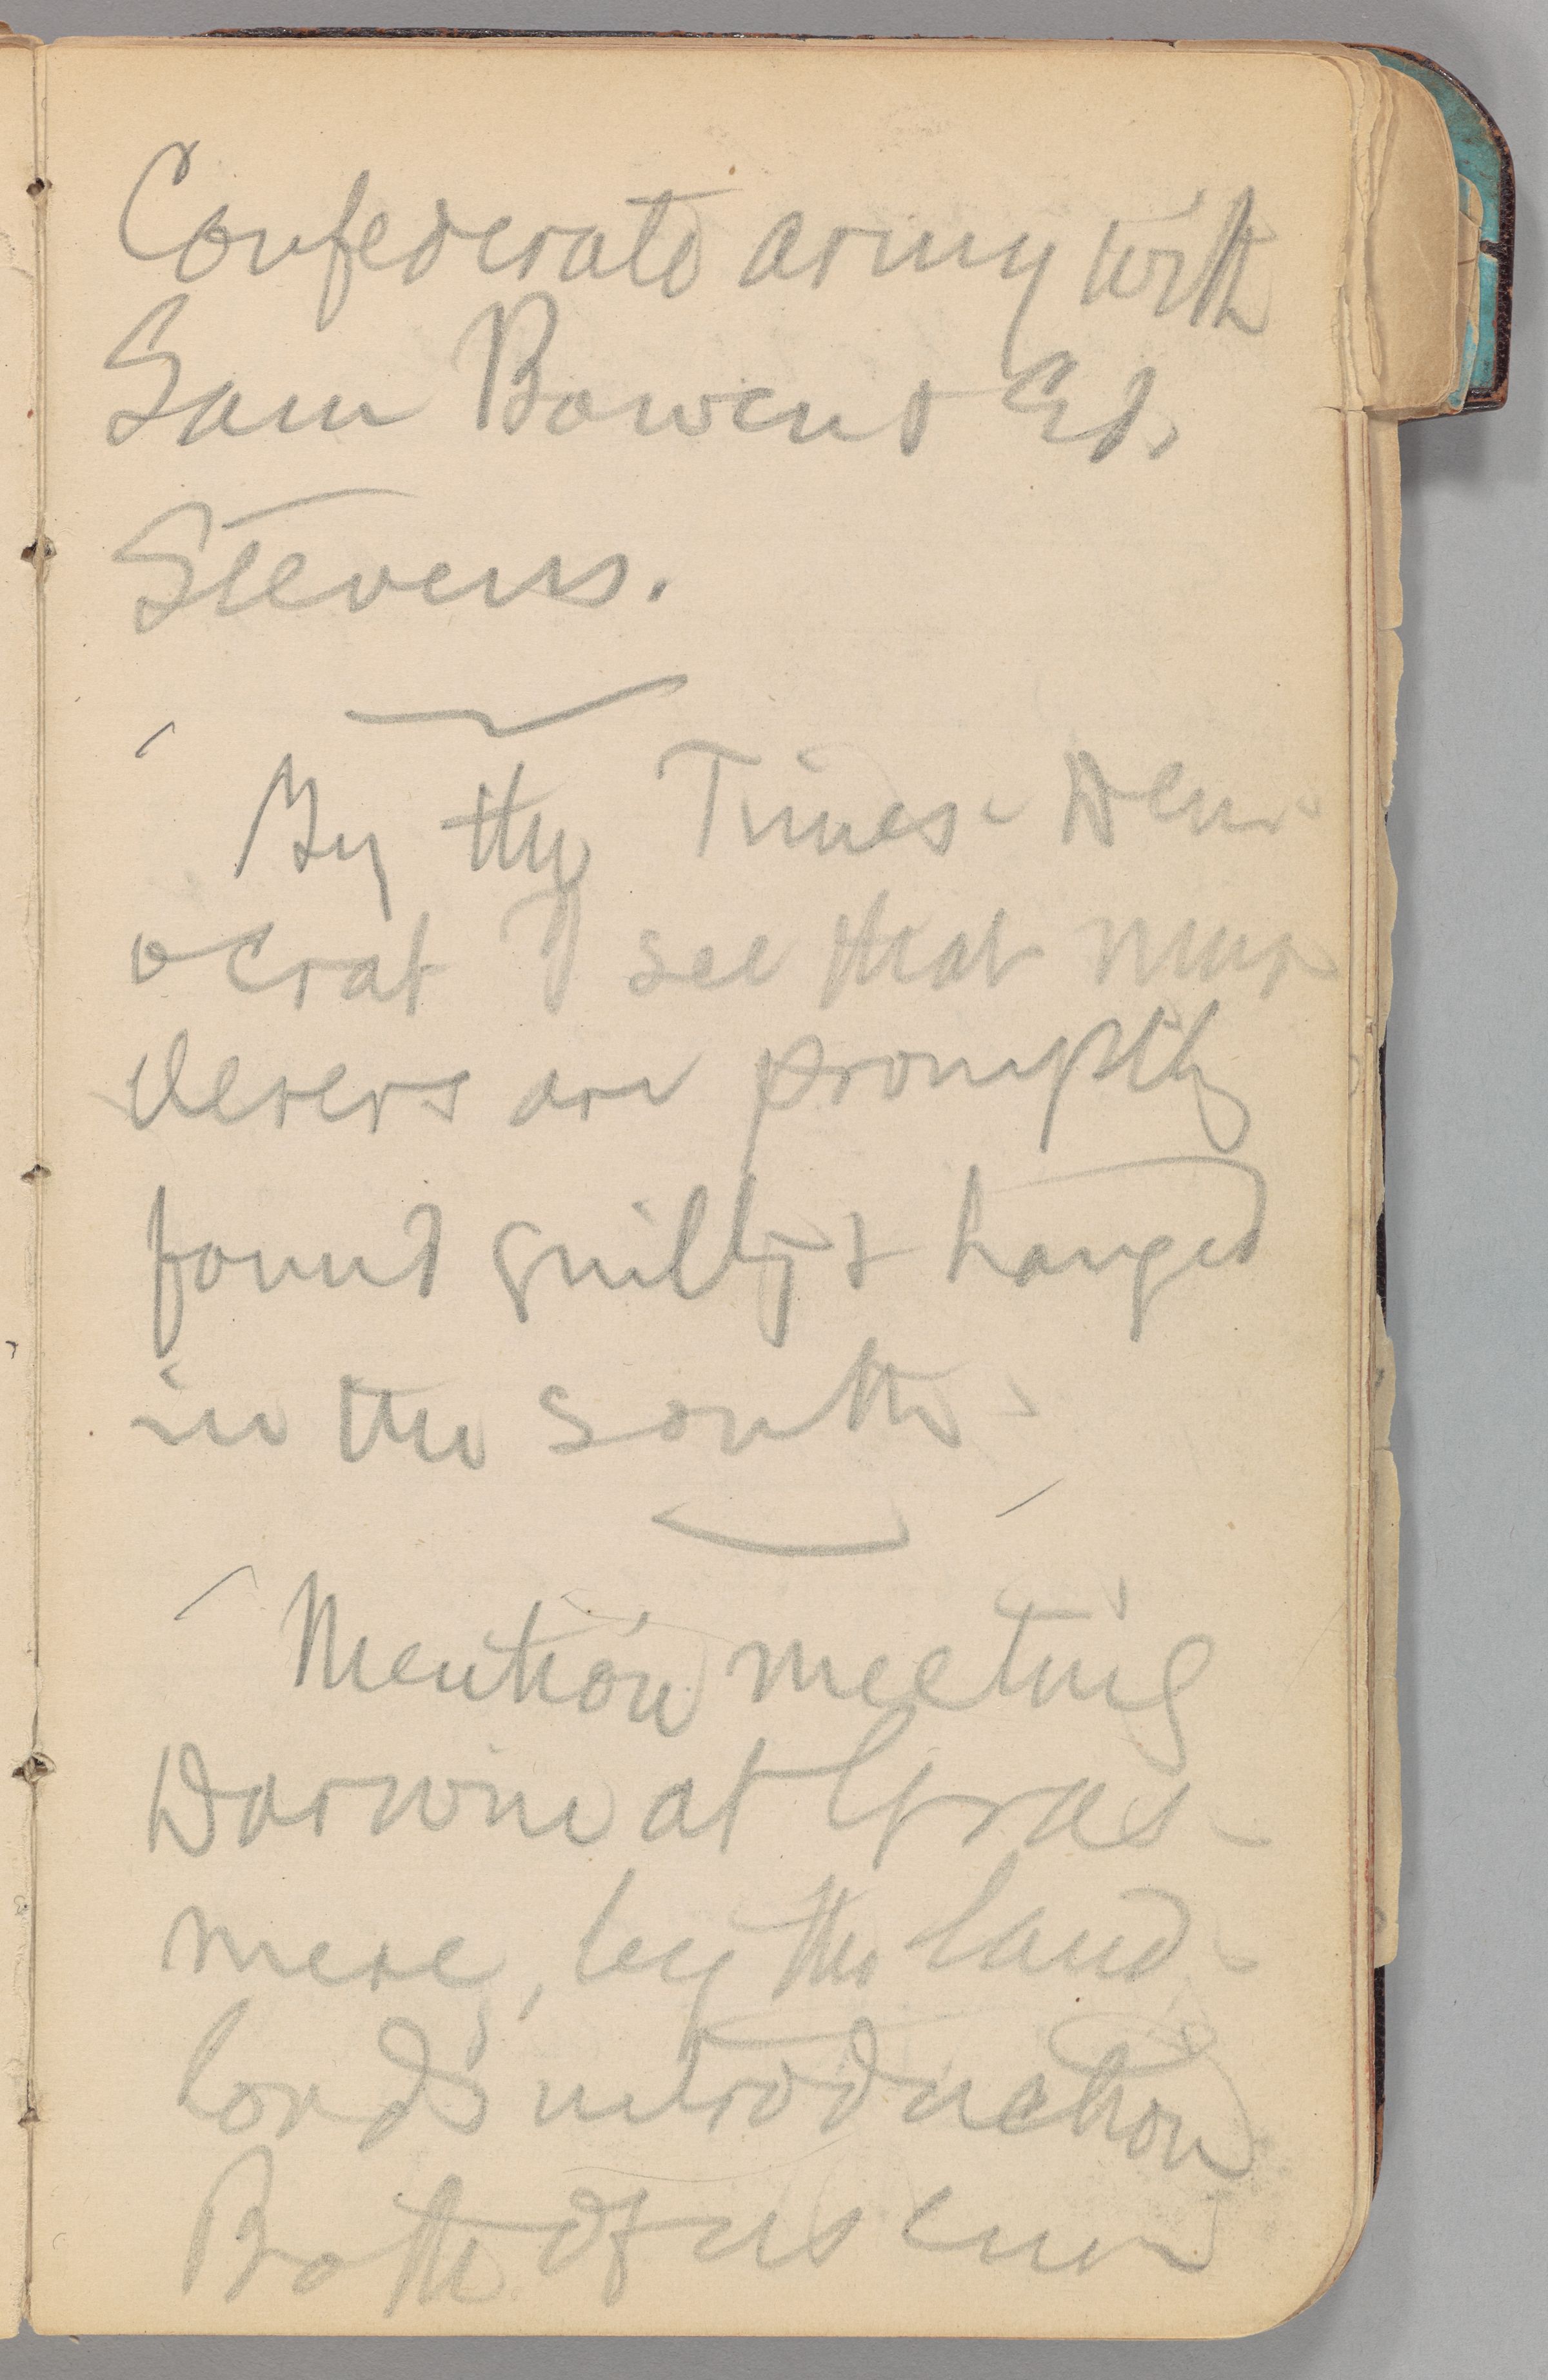 Confederate army with
Sam Bowen & Ed.
Stevens.
By the Times-Dem-
ocrat I see that mur-
derers are promptly
found guilty & hanged
in the south.
Mention meeting
Darwin at Gras-
mere, by the land-
lord's introduction
Both of us